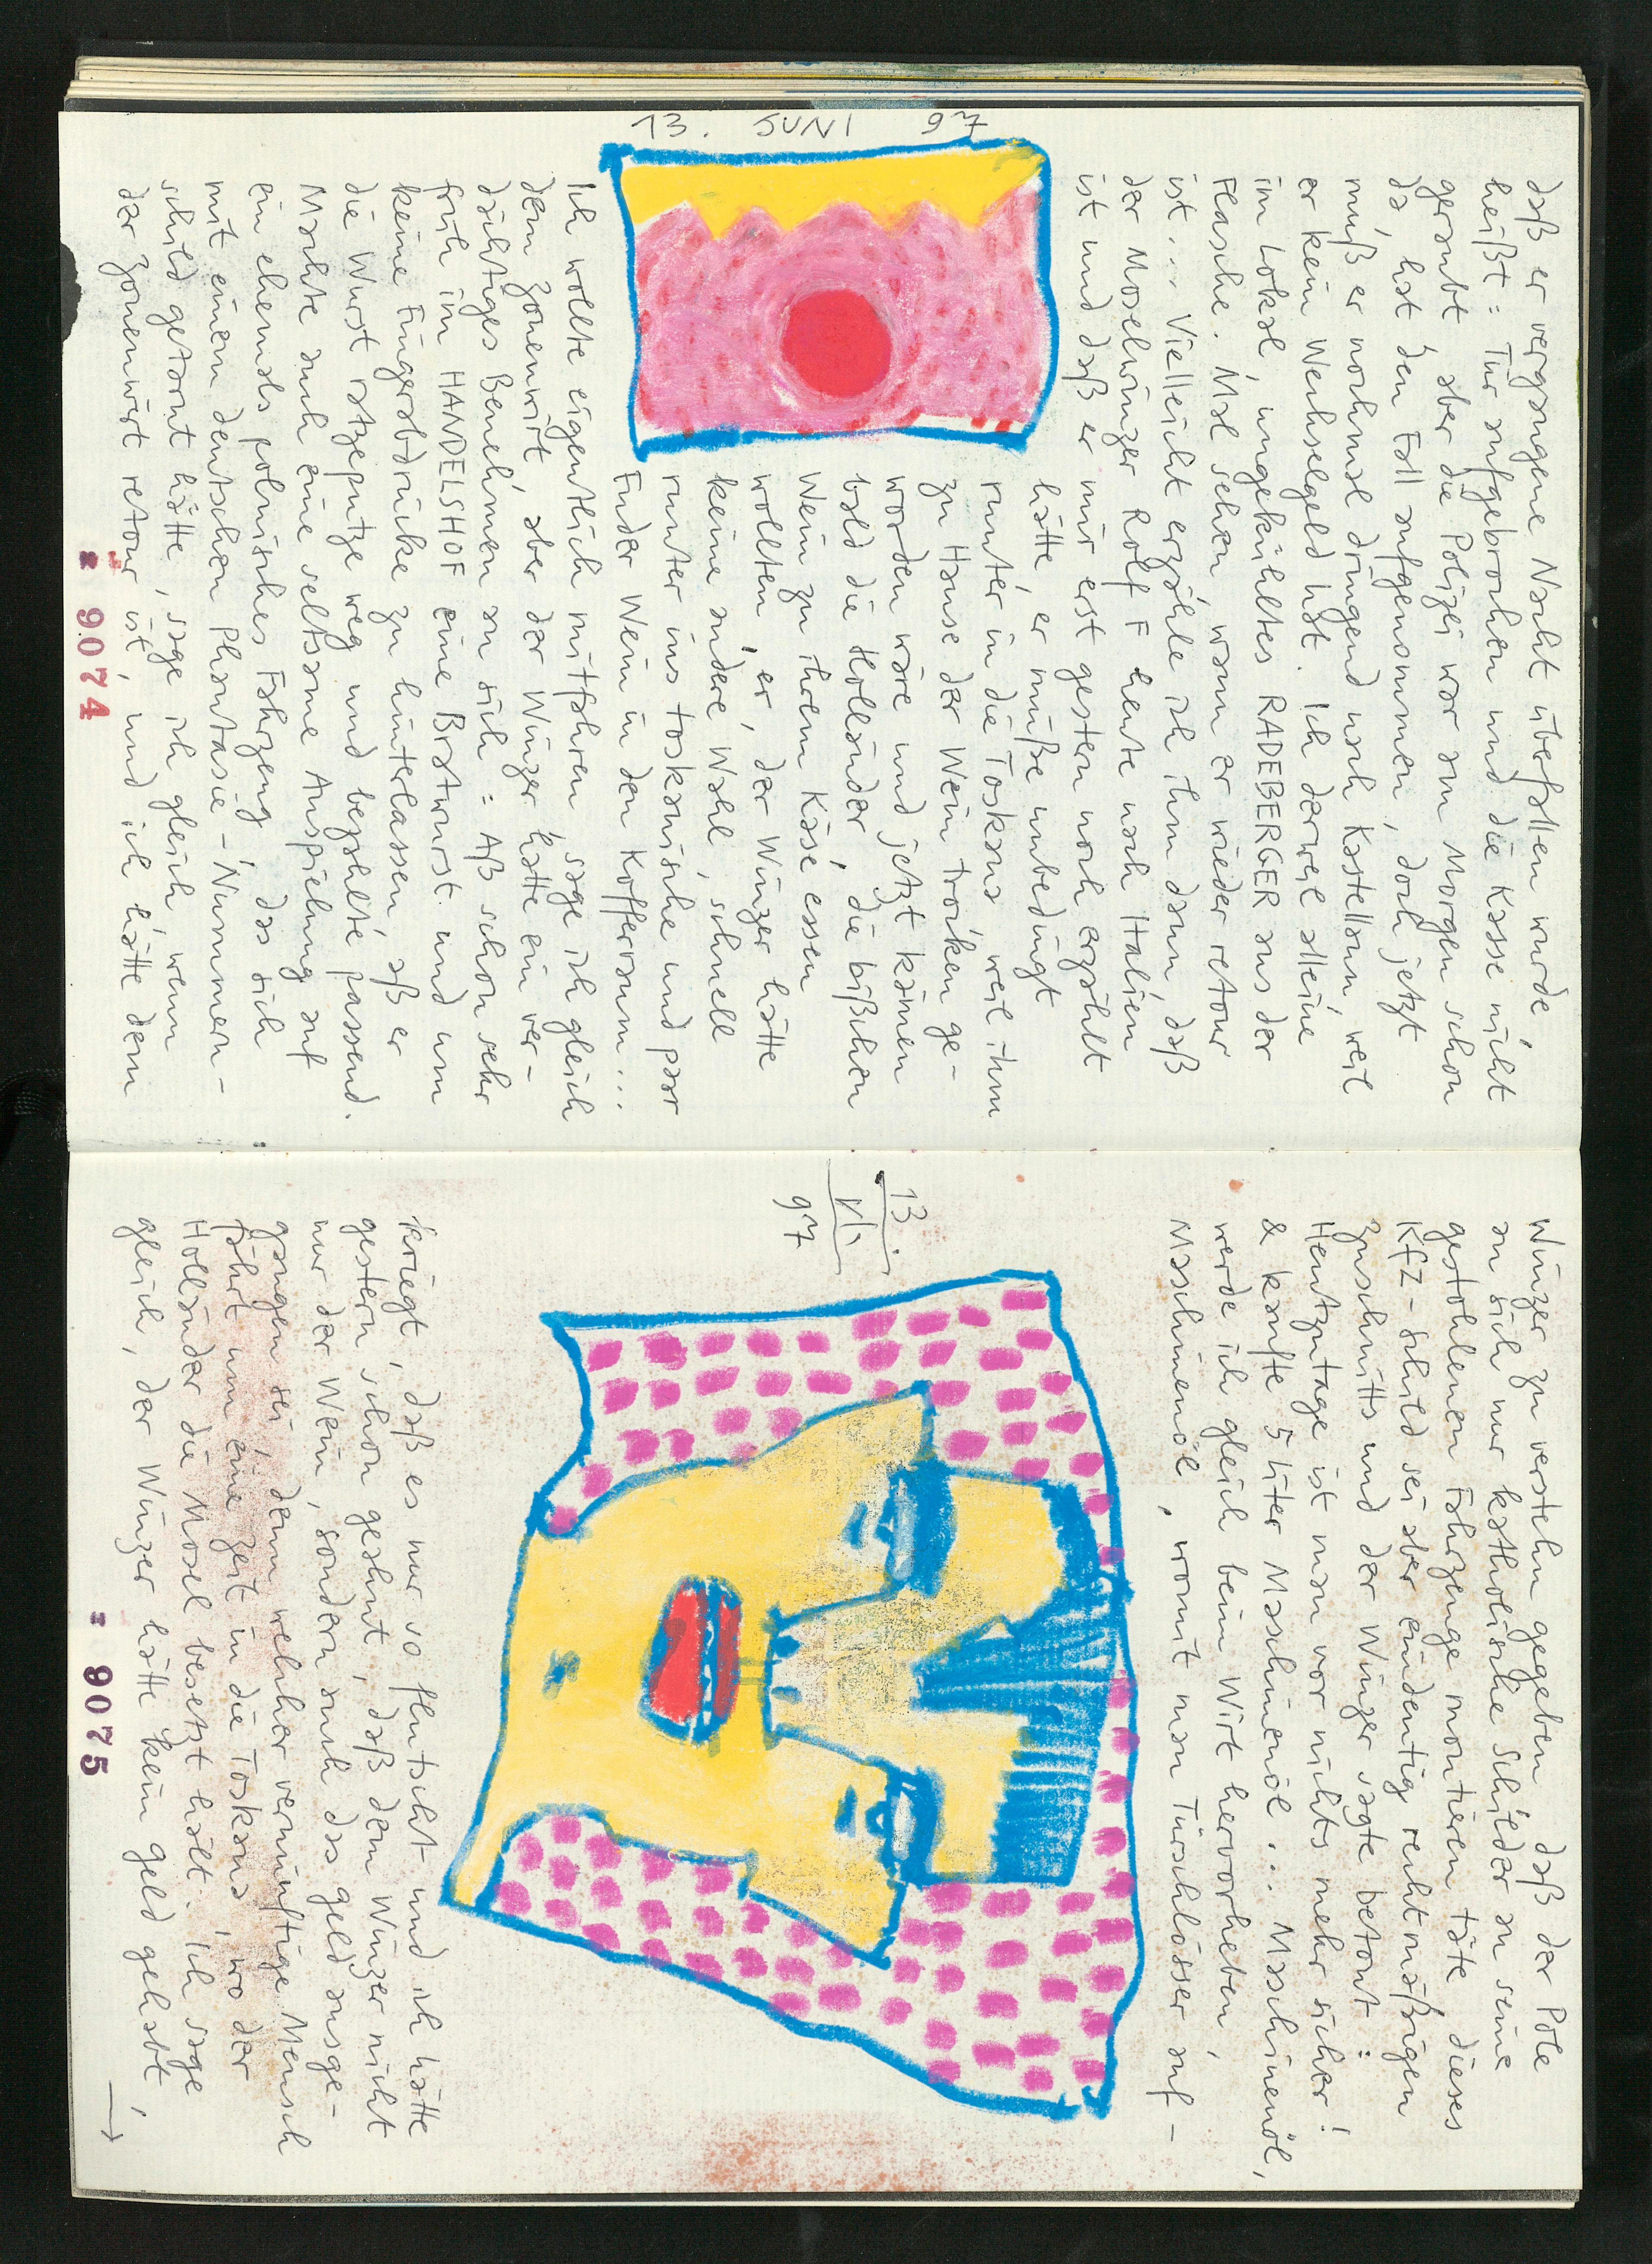 daß er vergangene Nacht überfallen wurde,
heißt = Tür aufgebrochen und die Kasse nicht
geraubt aber die Polizei war am Morgen schon
da, hat den Fall aufgenommen, doch jetzt
muß er nochmal dringend nach Kastellaun, weil
er kein Wechselgeld hat. Ich derweil alleine
im Lokal, ungekühltes RADEBERGER aus der
Flasche. Mal sehen, wann er wieder retour
ist ... Vielleicht erzähle ich ihm dann, daß
der Moselwinzer Rolf F heute nach Italien
ist und daß er mir erst gestern noch erzählt
hätte, er müße unbedingt
runter in die Toskana weil ihm
zu Hause der Wein trocken ge-
worden wäre und jetzt kämen
bald die Holländer, die bißchen
Wein zu ihrem Käse essen
wollten, er, der Winzer hätte
keine andere Wahl, schnell
runter ins toskanische und paar
Fuder Wein in den Kofferraum ...
13. JUNI 97
Ich wollte eigentlich mitfahren, sage ich gleich
dem Zonenwirt, aber der Winzer hätte ein ver-
dächtiges Benehmen an sich = Aß schon sehr
früh im HANDELSHOF eine Bratwurst und um
keine Fingerabdrücke zu hinterlassen, aß er
die Wurst ratzeputze weg und bezahlte passend.
Machte auch eine seltsame Anspielung auf
ein ehemals polnisches Fahrzeug, das sich
mit einem deutschen Phantasie-Nummern-
schild getarnt hätte, sage ich gleich wenn
der Zonenwirt retour ist, und ich hätte dem
= 9074
Winzer zu verstehn gegeben, daß der Pole
an sich nur katholische Schilder an seine
gestohlenen Fahrzeuge montieren täte, dieses
Kfz-Schild sei aber eindeutig rechtmäßigen
Zuschnitts und der Winzer sagte betont =
Heutzutage ist man vor nichts mehr sicher!
& kaufte 5 Liter Maschinenöl ... Maschinenöl,
werde ich gleich beim Wirt hervorheben,
Maschinenöl, womit man Türschlösser auf-
13
VI.
97
kriegt, daß es nur so flutscht und ich hätte
gestern schon geahnt, daß dem Winzer nicht
nur der Wein, sondern auch das Geld ausge-
gangen sei, denn welcher vernünftige Mensch
fährt um eine Zeit in die Toskana, wo der
Holländer die Mosel besetzt hält. Ich sage
gleich, der Winzer hätte kein Geld gehabt,
→
= 9075